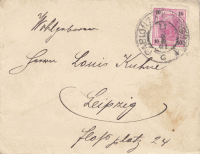 Wohlgeboren
Herrn Louis Kuhne
Leipzig
Floßplatz 24